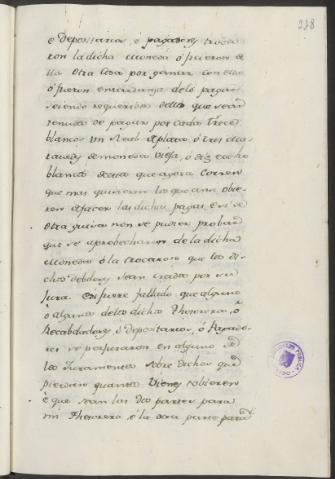 228
e Depositarios, e pagadores troca
ron la dicha moneda o ficieron de
lla otra cosa por ganar con ello
o fueron en tardanza de lo pagar
seiendo requeridos dello que sean
tenudos de pagar por cada trece
blancas un Real de plata, o tres
de moneda vieja, o diez e ocho
blancas destas que agora corren
que mas quisieren los que ansi obie
ren a facer las dichas pagas. E si de
otra guisa non se pudier probar
que se aprobecharon de la dicha
moneda o la trocaron que los di
chos debdores sean creidos por su
Jura. E si fuere fallado que alguno
o algunos de los dichos Thesoreros, o
Recabdadores, o Depositarios, o Pagado
res se perjuraron en alguno de
los Juramentos sobre dichos que
pierdan quantos Vienes obieren
e que sean las dos partes para
mi Thesorero e la otra parte para